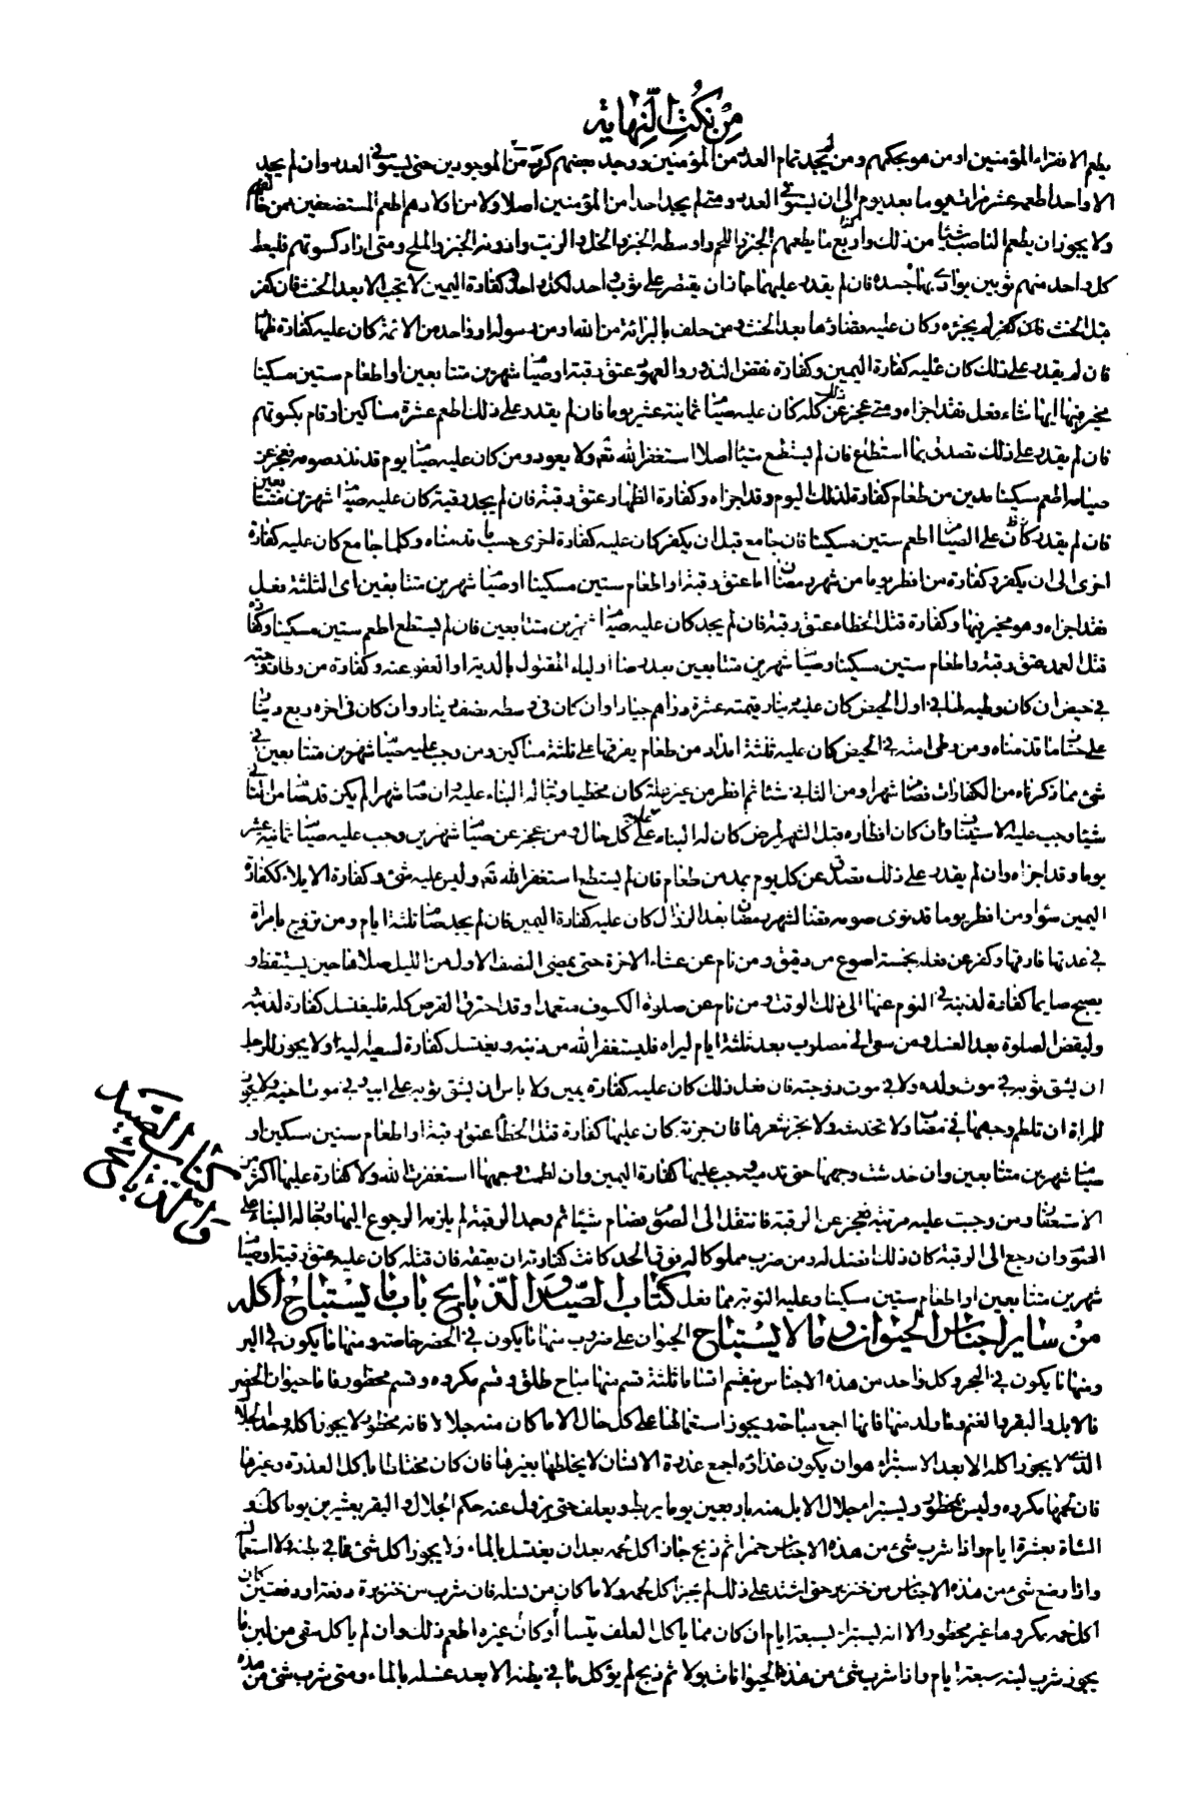 من نكت النهاية
يطعم الا فقراء المؤمنين او من هو بحكمهم ومن لم يجد تمام العدة من المؤمنين ووجد بعضهم كرر من الموجودين حتى يستوفى العدد وان لم يجد
الا واحدا اطعمه عشر مرات يوما بعد يوم الى ان يستوفى العدد ومتى لم يجد احدا من المؤمنين اصلا ولا من اولادهم اطعم المستضعفين ممن خالفهم
ولا يجوز ان يطعم الناصب شيئا من ذلك وارفع ما يطعمهم الخبز واللحم واوسطه الخبز والخل والزيت وادونه الخبز والملح ومتى اراد كسوتهم فليعط
كل واحد منهم ثوبين يوارى بهما جسده فان لم يقدر عليهما جاز ان يقتصر على ثوب واحد لكل واحد وكفارة اليمين لا تجب الا بعد الحنث فان كفر
قبل الحنث لم يجزه وكان عليه قضاؤها بعد الحنث ومن حلف بالبرائة من الله او من رسوله او واحد من الائمة كان عليه كفارة ظهار
فان لم يقدر على ذلك كان عليه كفارة اليمين وكفارة نقض النذور والعهود عتق رقبة او صيام شهرين متتابعين او اطعام ستين مسكينا
مخير فيها ايها شاء فعل فقد اجزاه ومتى عجز عن ذلك كله كان عليه صيام ثمانية عشر يوما فان لم يقدر على ذلك اطعم عشرة مساكين او قام بكسوتهم
فان لم يقدر على ذلك تصدق بما استطاع فان لم يستطع شيئا اصلا استغفر الله تعالى ولا يعود ومن كان عليه صيام يوم قد نذر صومه فعجز عن
صيامه اطعم مسكينا مدين من طعام كفارة لذلك اليوم وقد اجزاه وكفارة الظهار عتق رقبة فان لم يجد رقبة كان عليه صيام شهرين متتابعين
فان لم يقدر على الصيام اطعم ستين مسكينا فان جامع قبل ان يكفر كان عليه كفارة اخرى حسب ما قدمناه وكلما جامع كان عليه كفارة
اخرى الى ان يكفر وكفارة من افطر يوما من شهر رمضان اما عتق رقبة او اطعام ستين مسكينا او صيام شهرين متتابعين اى الثلثة فعل
فقد اجزاه وهو مخير فيها وكفارة قتل الخطاء عتق رقبة فان لم يجد كان عليه صيام شهرين متتابعين فان لم يستطع اطعم ستين مسكينا وكفارة
قتل العمد عتق رقبة واطعام ستين مسكينا وصيام شهرين متتابعين بعد رضا اولياء المقتول بالدية او العفو عنه وكفارة من وطئ زوجته
فى حيض ان كان وطيه لها فى اول الحيض كان عليه دينار قيمته عشرة دراهم جيادا وان كان فى وسطه نصف دينار وان كان فى اخره ربع دينار
على حسب ما قدمناه ومن وطئ امته فى الحيض كان عليه ثلثة امداد من طعام يفرقها على ثلثة مساكين ومن وجب عليه صيام شهرين متتابعين فى
شئ مما ذكرناه من الكفارات فصام شهرا ومن الثانى شيئا ثم افطر من غير علة كان مخطيا وجاز له البناء عليه وان صام شهرا لم يكن قد صام من الثانى
شيئا وجب عليه الاستيناف وان كان افطاره قبل الشهر لمرض كان له البناء عليه على كل حال ومن عجز عن صيام شهرين وجب عليه صيام ثمانية عشر
يوما وقد اجزاه وان لم يقدر على ذلك تصدق عن كل يوم بمد من طعام فان لم يستطع استغفر الله تعالى وليس عليه شئ وكفارة الايلاء ككفارة
اليمين سواء ومن افطر يوما قد نوى صومه قضاء لشهر رمضان بعد الزوال كان عليه كفارة اليمين فان لم يجد صام ثلثة ايام ومن تزوج بامراة
فى عدتها فارقها وكفر عن فعله بخمسة اصوع من دقيق ومن نام عن عشاء الاخرة حتى يمضى النصف الاول من الليل صلاها حين يستيقظ و
يصبح صايما كفارة لذنبه فى النوم عنها الى ذلك الوقت ومن نام عن صلوة الكسوف متعمدا وقد احترق القرص كله فليغتسل كفارة لذنبه
وليقض الصلوة بعد الغسل ومن سعى الى مصلوب بعد ثلثة ايام ليراه فليستغفر الله من ذنبه ويغتسل كفارة لسعيه اليه ولا يجوز للرجل
ان يشق ثوبه فى موت ولده ولا فى موت زوجته فان فعل ذلك كان عليه كفارة يمين ولا باس ان يشق ثوبه على ابيه وفى موت اخيه ولا يجوز
للمراة ان تلطم وجهها فى مصاب ولا تخدشه ولا تجز شعرها فان جزته كان عليها كفارة قتل الخطأ عتق رقبة او اطعام ستين مسكينا و
صيام شهرين متتابعين وان خدشت وجهها حتى تدميه وجب عليها كفارة اليمين وان لطمت وجهها استغفرت الله ولا كفارة عليها اكثر من
الاستغفار ومن وجبت عليه كفارة مرتبة فعجز عن الرقبة فانتقل الى الصوم فصام شيئا ثم وجد الرقبة لم يلزمه الرجوع اليها وجاز له البناء على
الصوم وان رجع الى الرقبة كان ذلك افضل له ومن ضرب مملوكا له فوق الحد كانت كفارته ان يعتقه فان قتله كان عليه عتق رقبة او صيام
شهرين متتابعين او اطعام ستين مسكينا وعليه التوبة مما فعل كتاب الصيد والذبايح باب ما يستباح اكله
من ساير اجناس الحيوان وما لا يستباح الحيوان على ضروب منها ما يكون فى الحضر خاصة ومنها ما يكون فى البر
ومنها ما يكون فى البحر وكل واحد من هذه الاجناس ينقسم اقساما ثلثة قسم منها مباح طلق وقسم مكروه وقسم محظور فاما حيوان الحضر
فالابل والبقر والغنم وما ولد منها فانها اجمع مباحة ويجوز استعمالها على كل حال الا ما كان منه جلالا فانه محظور لا يجوز اكله وحد الجلال
الذى لا يجوز اكله الا بعد الاستبراء هو ان يكون غذاؤه اجمع عذرة الانسان لا يخلطها بغيرها فان كان مختلطا ياكل العذرة وغيرها
فان لحمها مكروه وليس بمحظور ويستبرا جلال الابل منه باربعين يوما يربط ويعلف حتى يزول عنه حكم الجلال والبقر بعشرين يوما كذلك و
الشاة بعشرة ايام واذا شرب شئ من هذه الاجناس خمرا ثم ذبح جاز اكل لحمه بعد ان يغسل بالماء ولا يجوز اكل شئ مما فى بطنه ولا استعماله
واذا رضع شئ من هذه الاجناس من خنزير حتى اشتد على ذلك لم يجز اكل لحمه ولا ما كان من نسله فان شرب من خنزيرة دفعة او دفعتين كان
اكل لحمه مكروها غير محظور الا انه يستبرئ بسبعة ايام ان كان مما ياكل العلف كسبا او كان غيره اطعم ذلك وان لم ياكل سقى من لبن ما
يجوز شرب لبنه سبعة ايام واذا شرب شئ من هذه الحيوانات بولا ثم ذبح لم يؤكل ما فى بطنه الا بعد غسله بالماء ومتى شرب شئ من هذه
كتاب الصيد
والذبائح